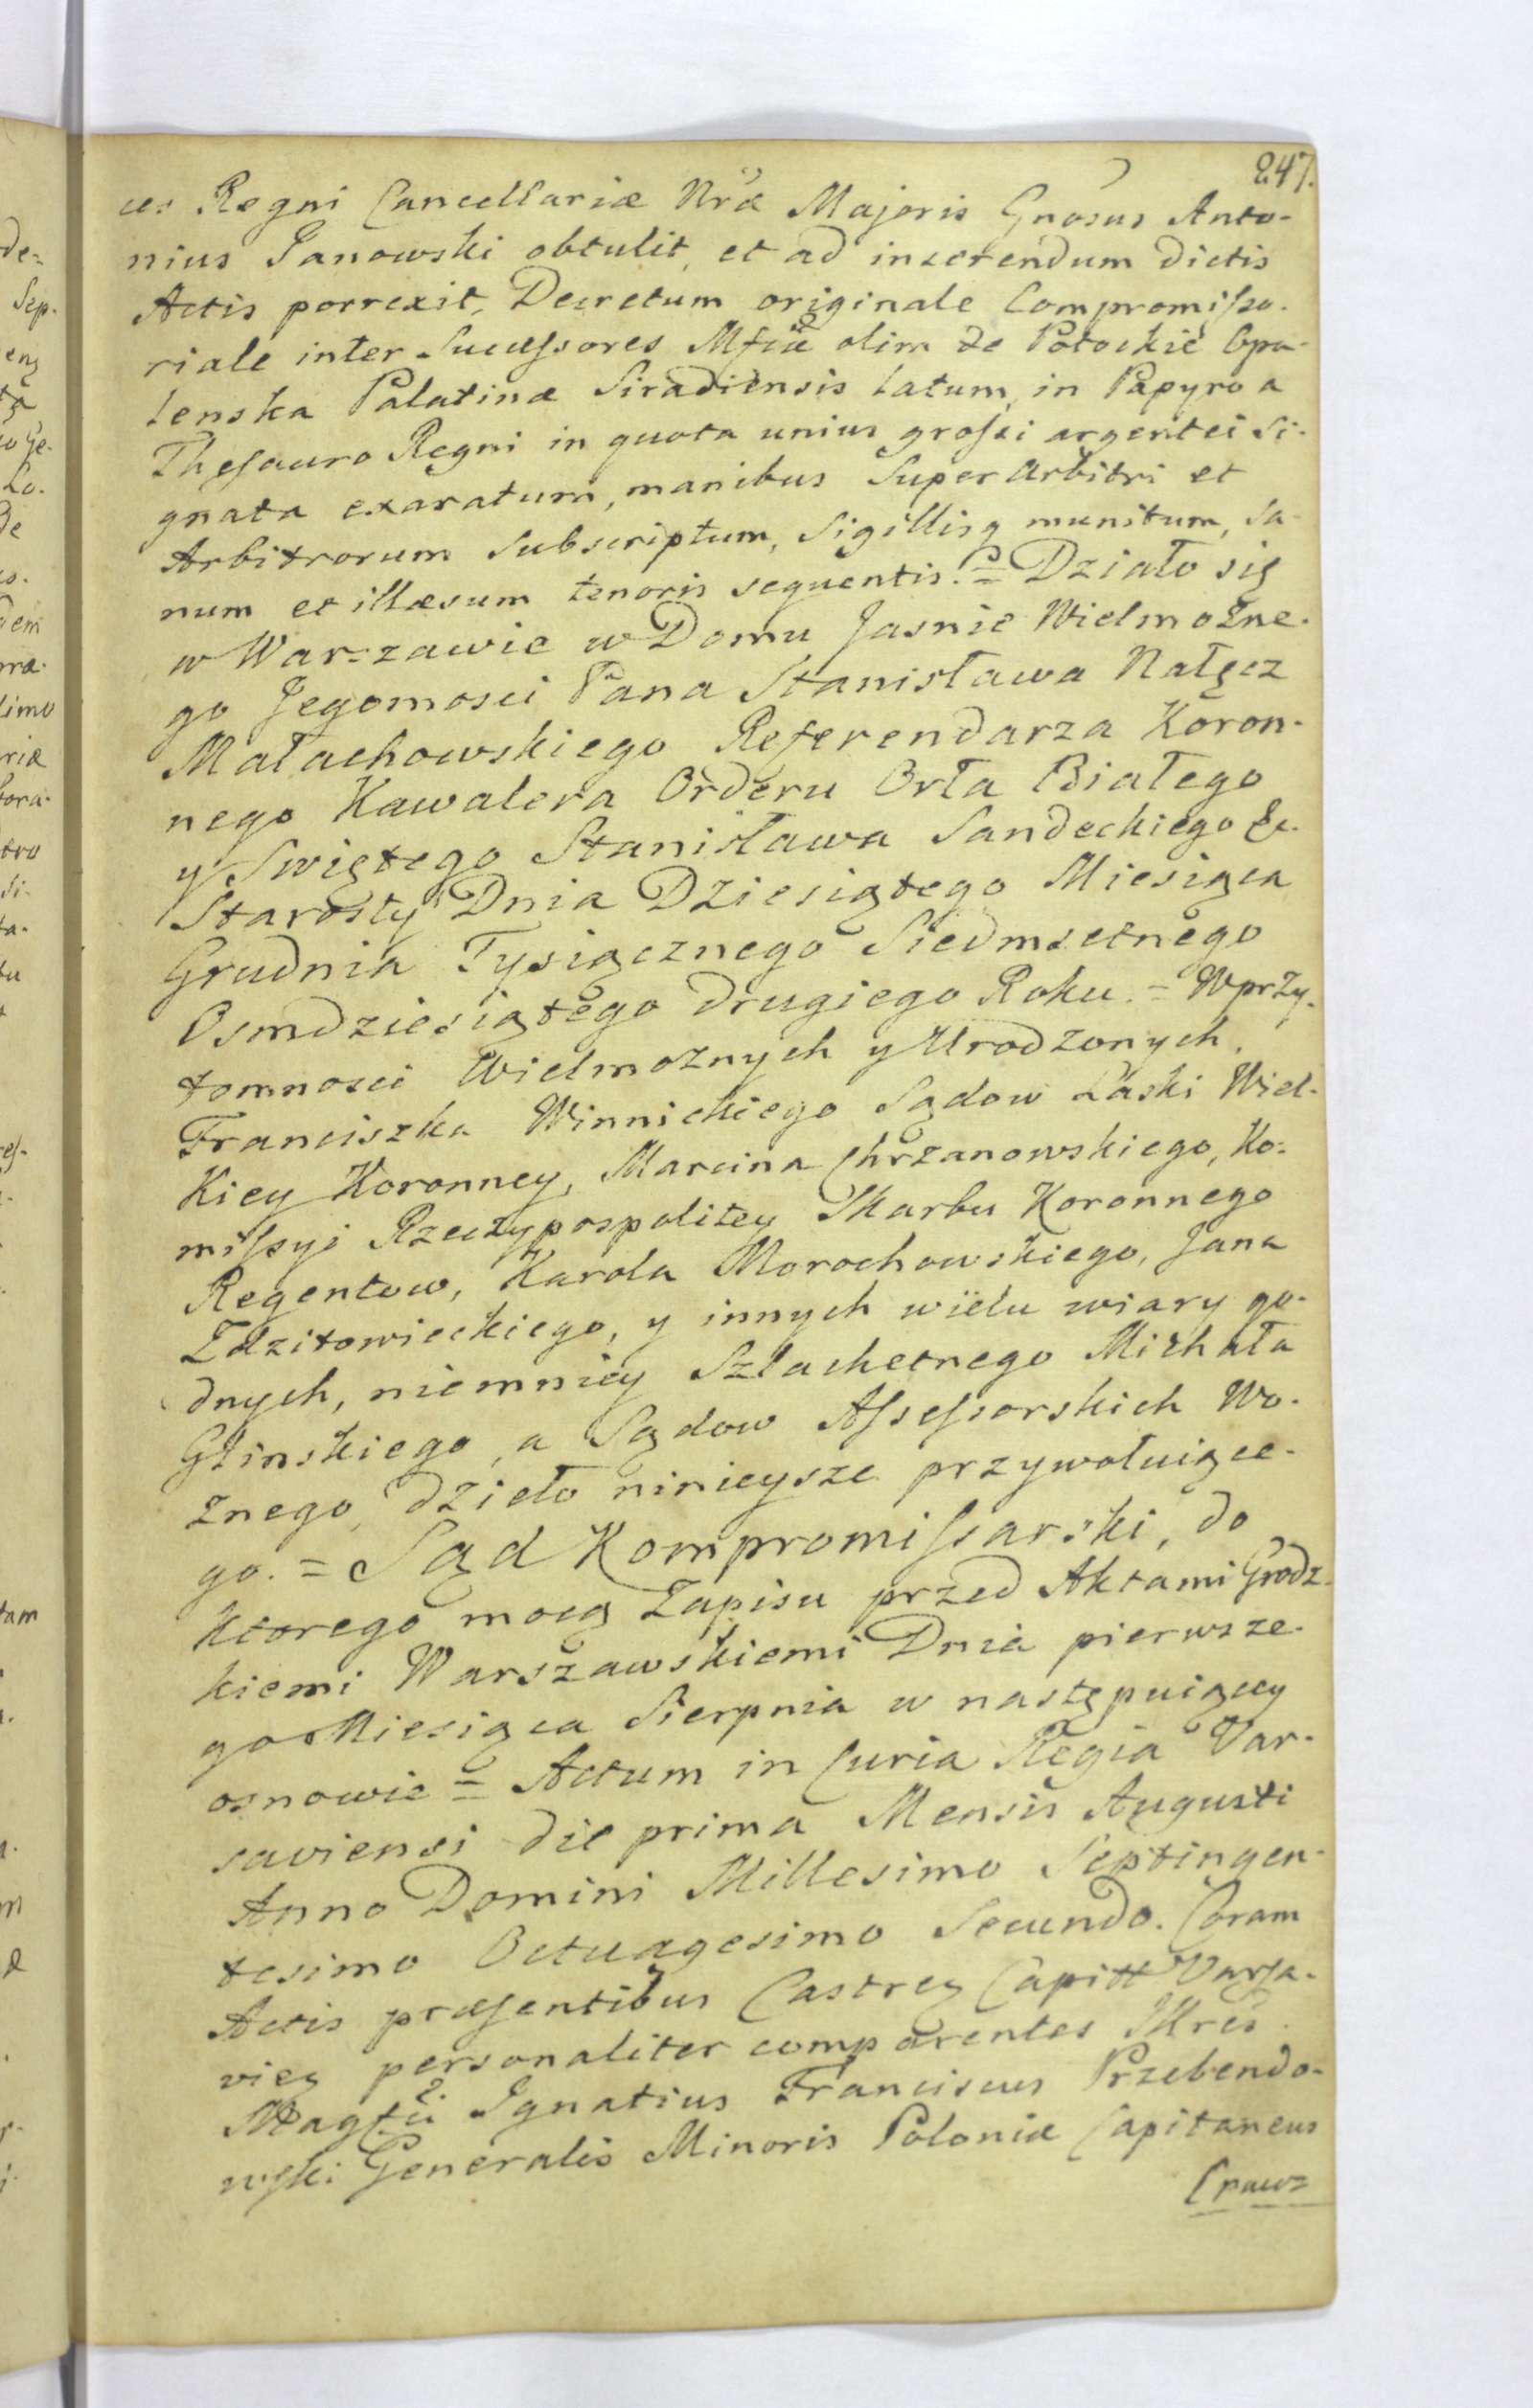 247.
ces Regni Cancellariæ Nræ Majoris Gnosus Anto-
nius Janowski obtulit, et ad inserendum dictis
Actis porrexit, Decretum originale Compromisso-
riale inter Successores Mfcæ olim de Potockie Opa-
lenska Palatinæ Siradiensis latum, in Papyro a
Thesauro Regni in quota unius grossi argentei Si-
gnata exaratum, manibus Super Arbitri et
Arbitrorum subscriptum, Sigillisq munitum, sa-
num et illæsum tenoris sequentis. = Działo się
w Warszawie w Domu Jasnie Wielmożne-
go Jegomosci Pana Stanisława Nałęcz
Małachowskiego Referendarza Koron-
nego Kawalera Orderu Orła Białego
y Swiętego Stanisława Sandeckiego &c.
Starosty Dnia Dziesiątego Miesiąca
Grudnia Tysiącznego Siedmsetnego
Osmdziesiątego drugiego Roku. = W przy-
tomnosci Wielmożnych y Urodzonych,
Franciszka Winnickiego Sądow Łaski Wiel-
kiey Koronney, Marcina Chrzanowskiego, Ko-
missyi Rzeczypospolitey Skarbu Koronnego
Regentow, Karola Morochowskiego, Jana
Zdzitowieckiego, y innych wielu wiary go-
dnych, niemniey Szlachetnego Michała
Glinskiego, a Sądow Assessorskich Wo-
znego, dzieło ninieysze przywołuiące-
go. = Sąd Kompromissarski, do
ktorego mocą Zapisu przed Aktami Grodz-
kiemi Warszawskiemi Dnia pierwsze-
go Miesiąca Sierpnia w następuiącey
osnowie = Actum in Curia Regia Var-
saviensi die prima Mensis Augusti
Anno Domini Millesimo Septingen-
tesimo Octuagesimo Secundo. Coram
Actis præsentibus Castreŋ Capitt Varsa-
vieŋ personaliter comparentes Illres
Magfci Ignatius Franciscus Przebendo-
wski Generalis Minoris Poloniæ Capitaneus